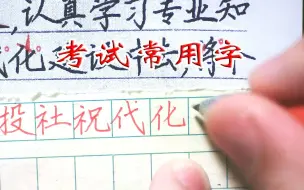 ,认真学习专业知
代化建设
考试常用字
投社祝代化